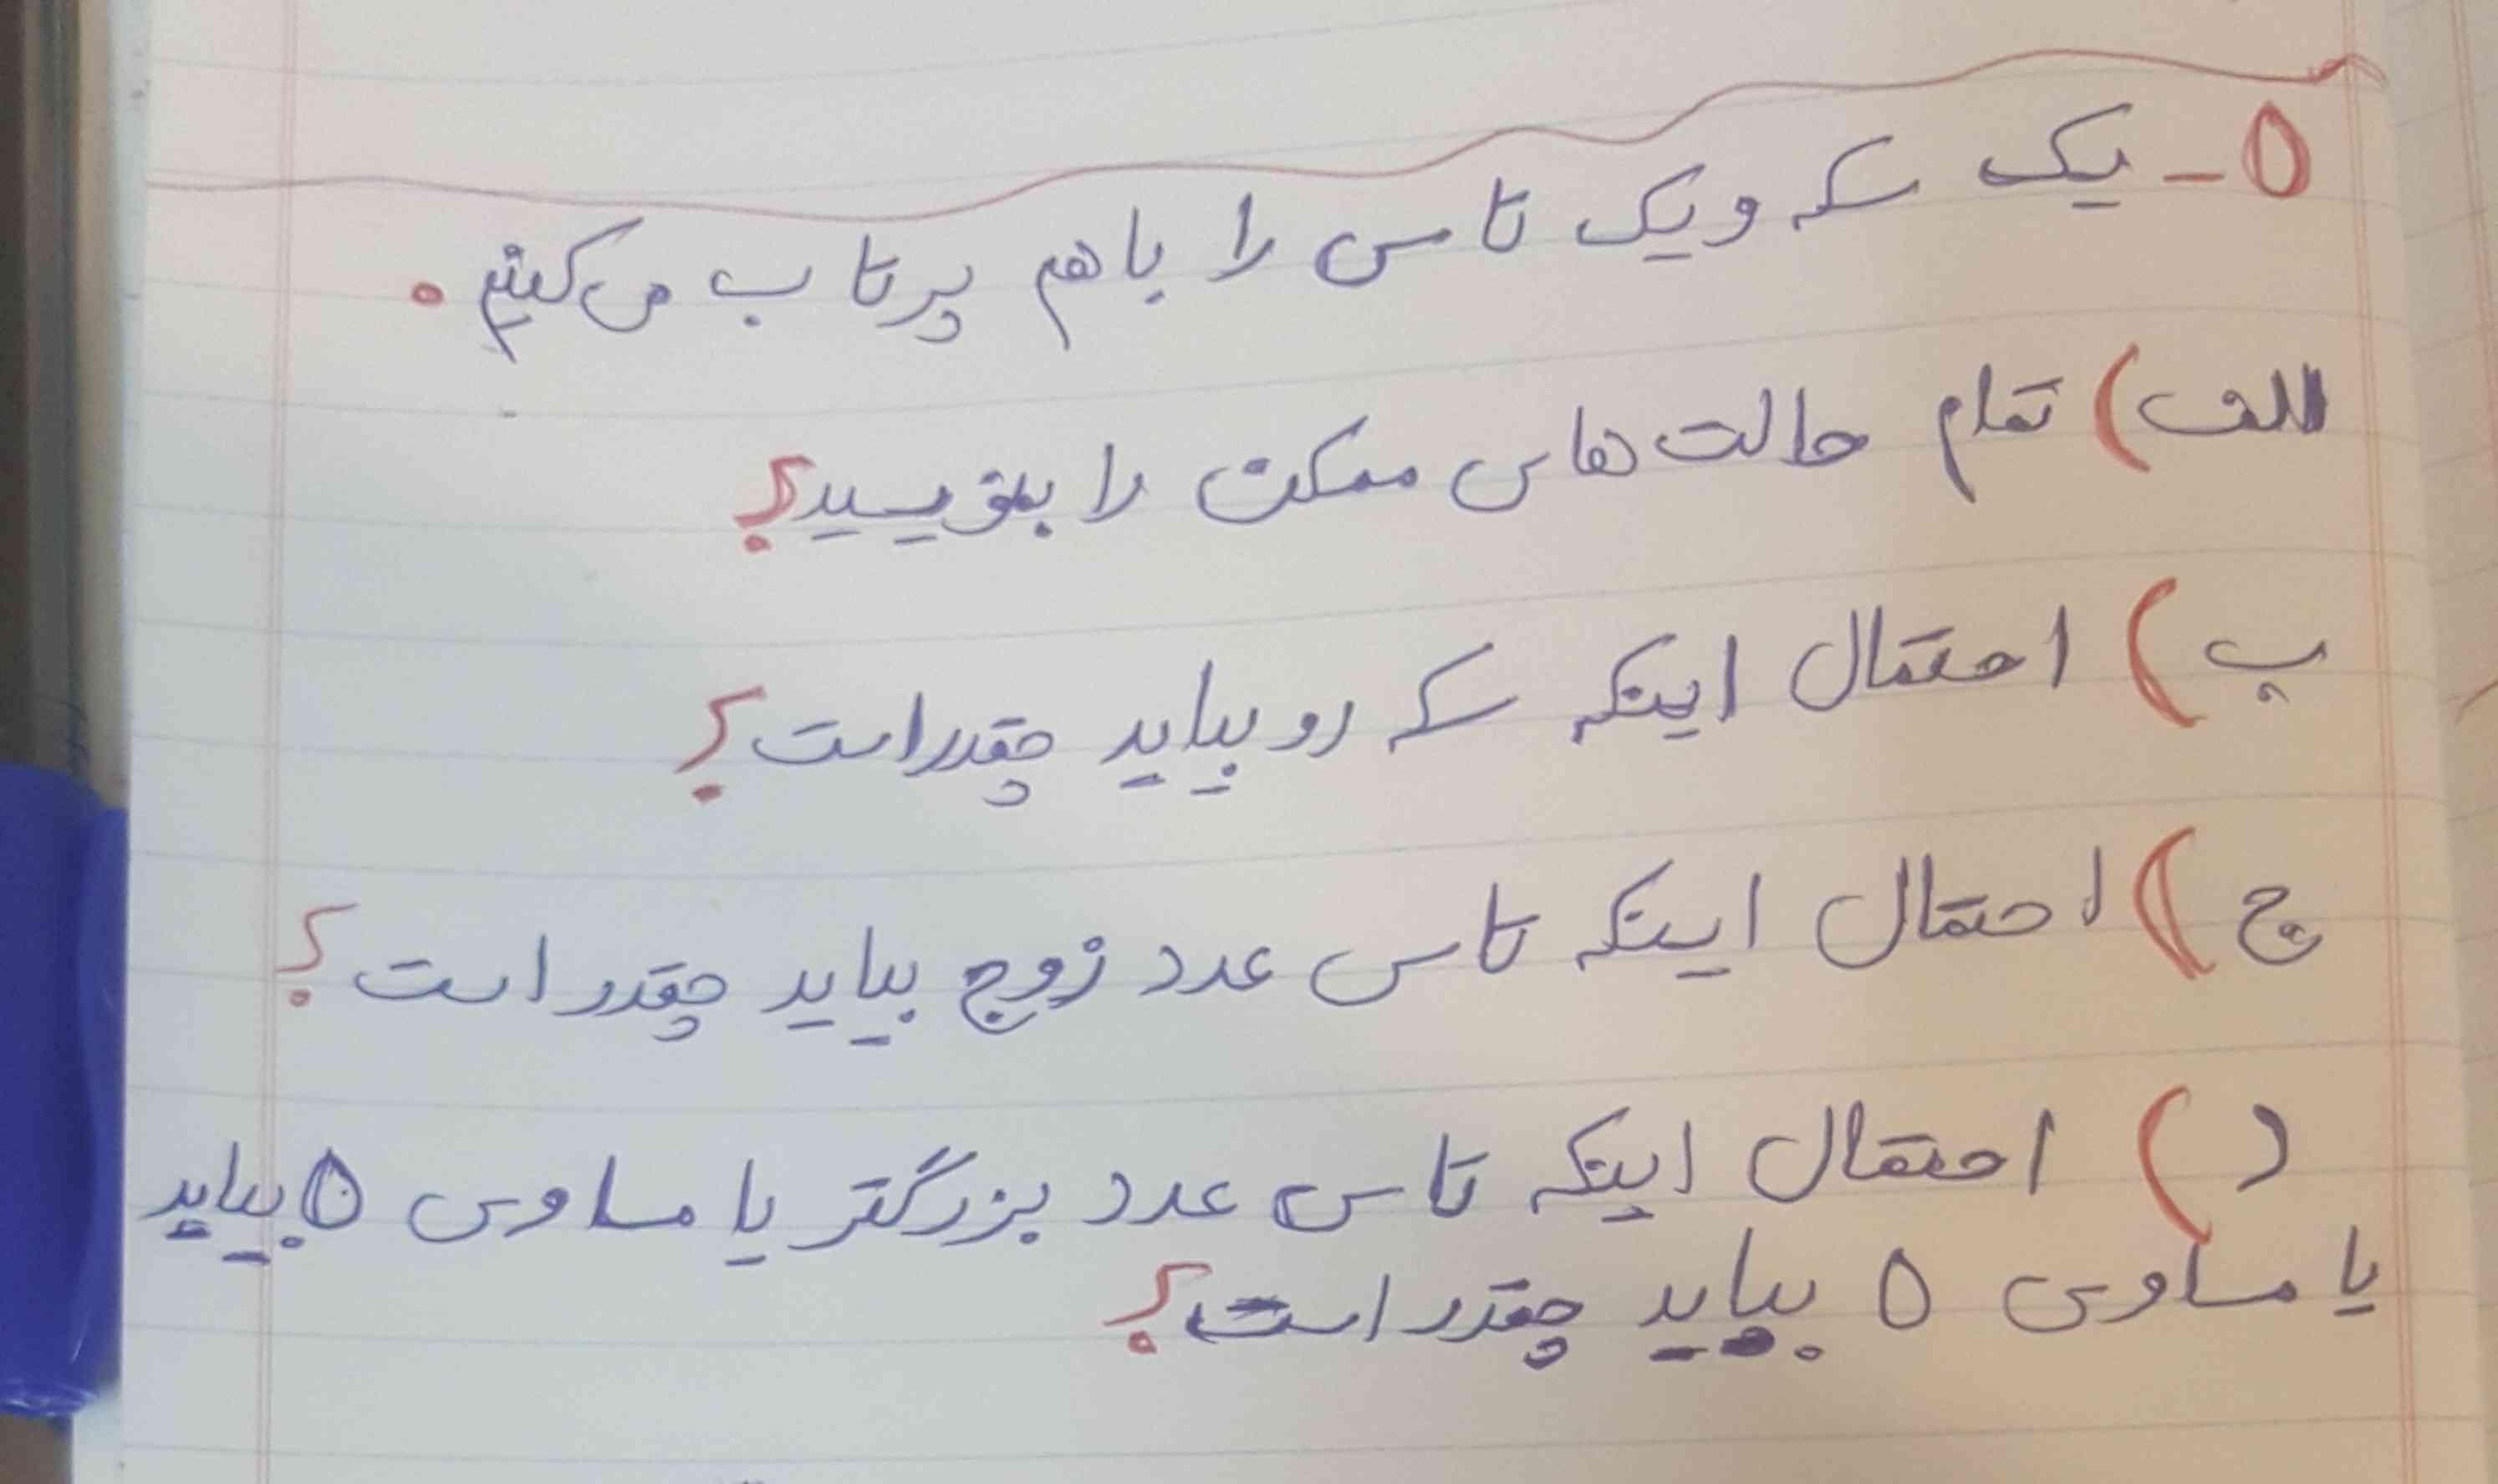 ۵- یک سکه و یک تاس را با هم پرتاب می‌کنیم.
الف) تمام حالت‌های ممکن را بنویسید؟
پ) احتمال اینکه سکه رو بیاید چقدر است؟
ج) احتمال اینکه تاس عدد زوج بیاید چقدر است؟
د) احتمال اینکه تاس عدد بزرگتر یا مساوی ۵ بیاید
یا مساوی ۵ بیاید چقدر است؟